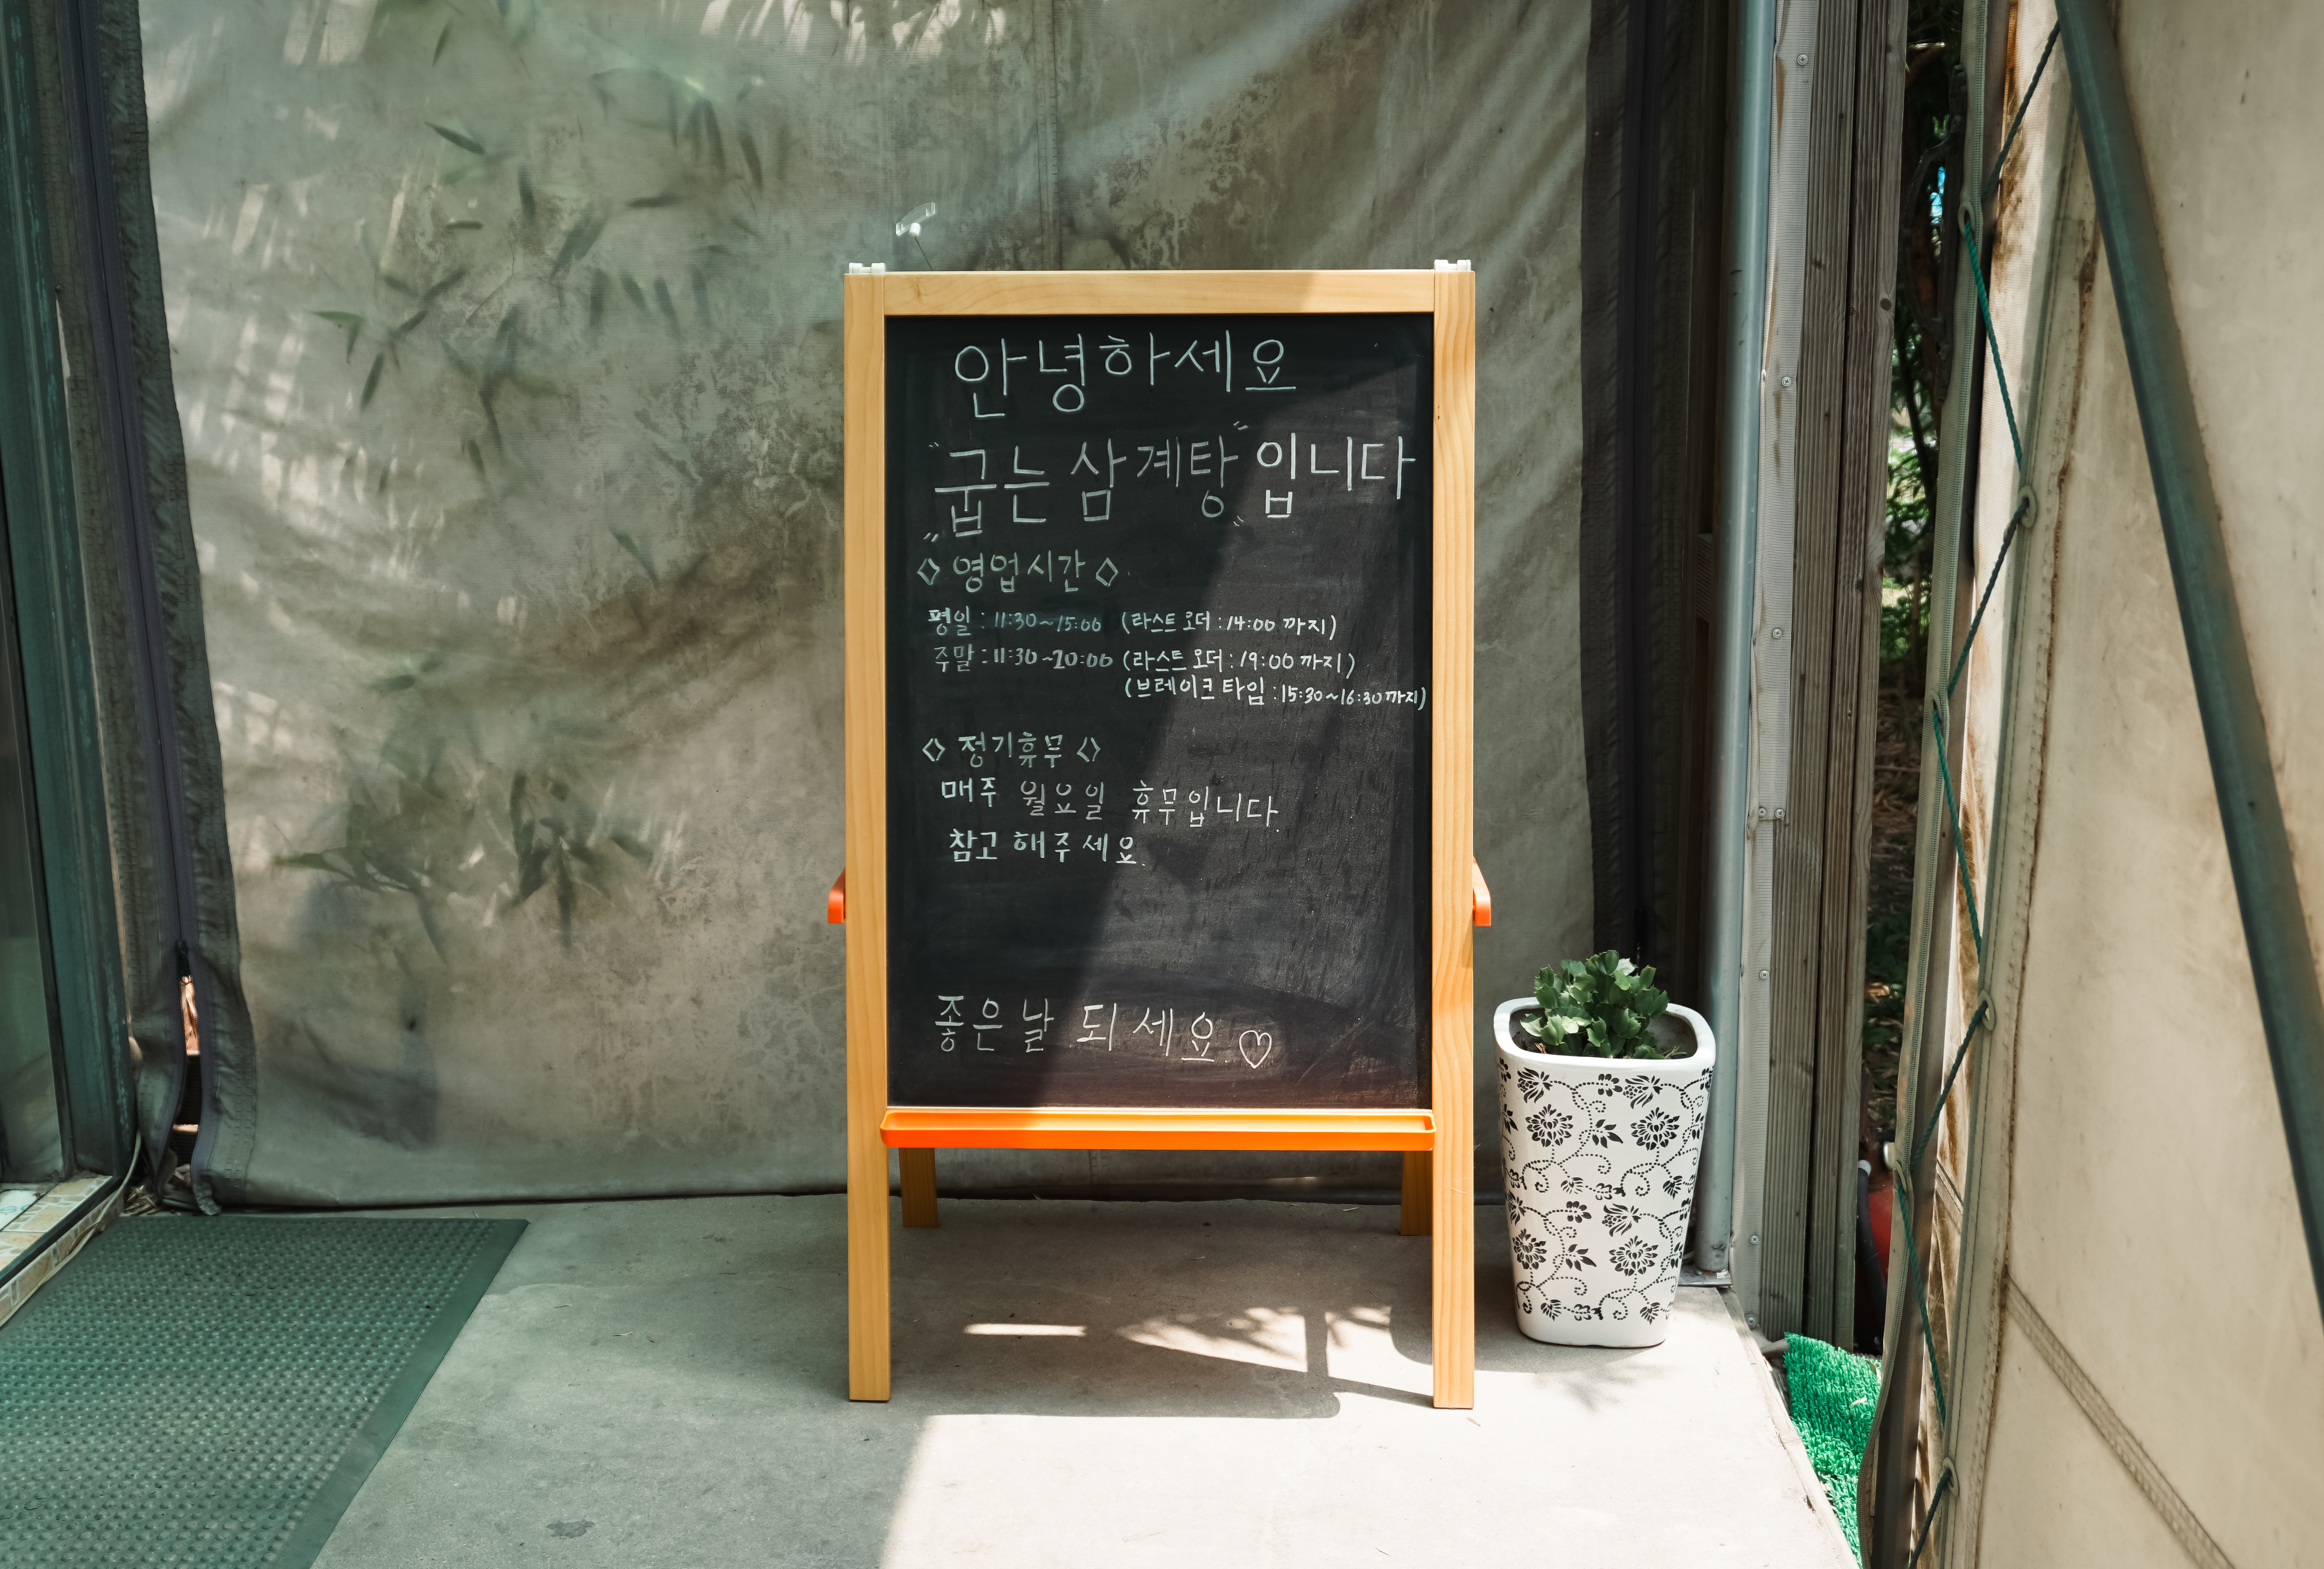 안녕하세요
"굽는삼계탕"입니다
◇ 영업시간 ◇
평일 : 11:30~15:00 (라스트오더 : 14:00 까지)
주말 : 11:30~20:00 (라스트오더 : 19:00 까지)
(브레이크타임 : 15:30~16:30 까지)
◇ 정기휴무 ◇
매주 월요일 휴무입니다.
참고해주세요.
좋은날 되세요.♡